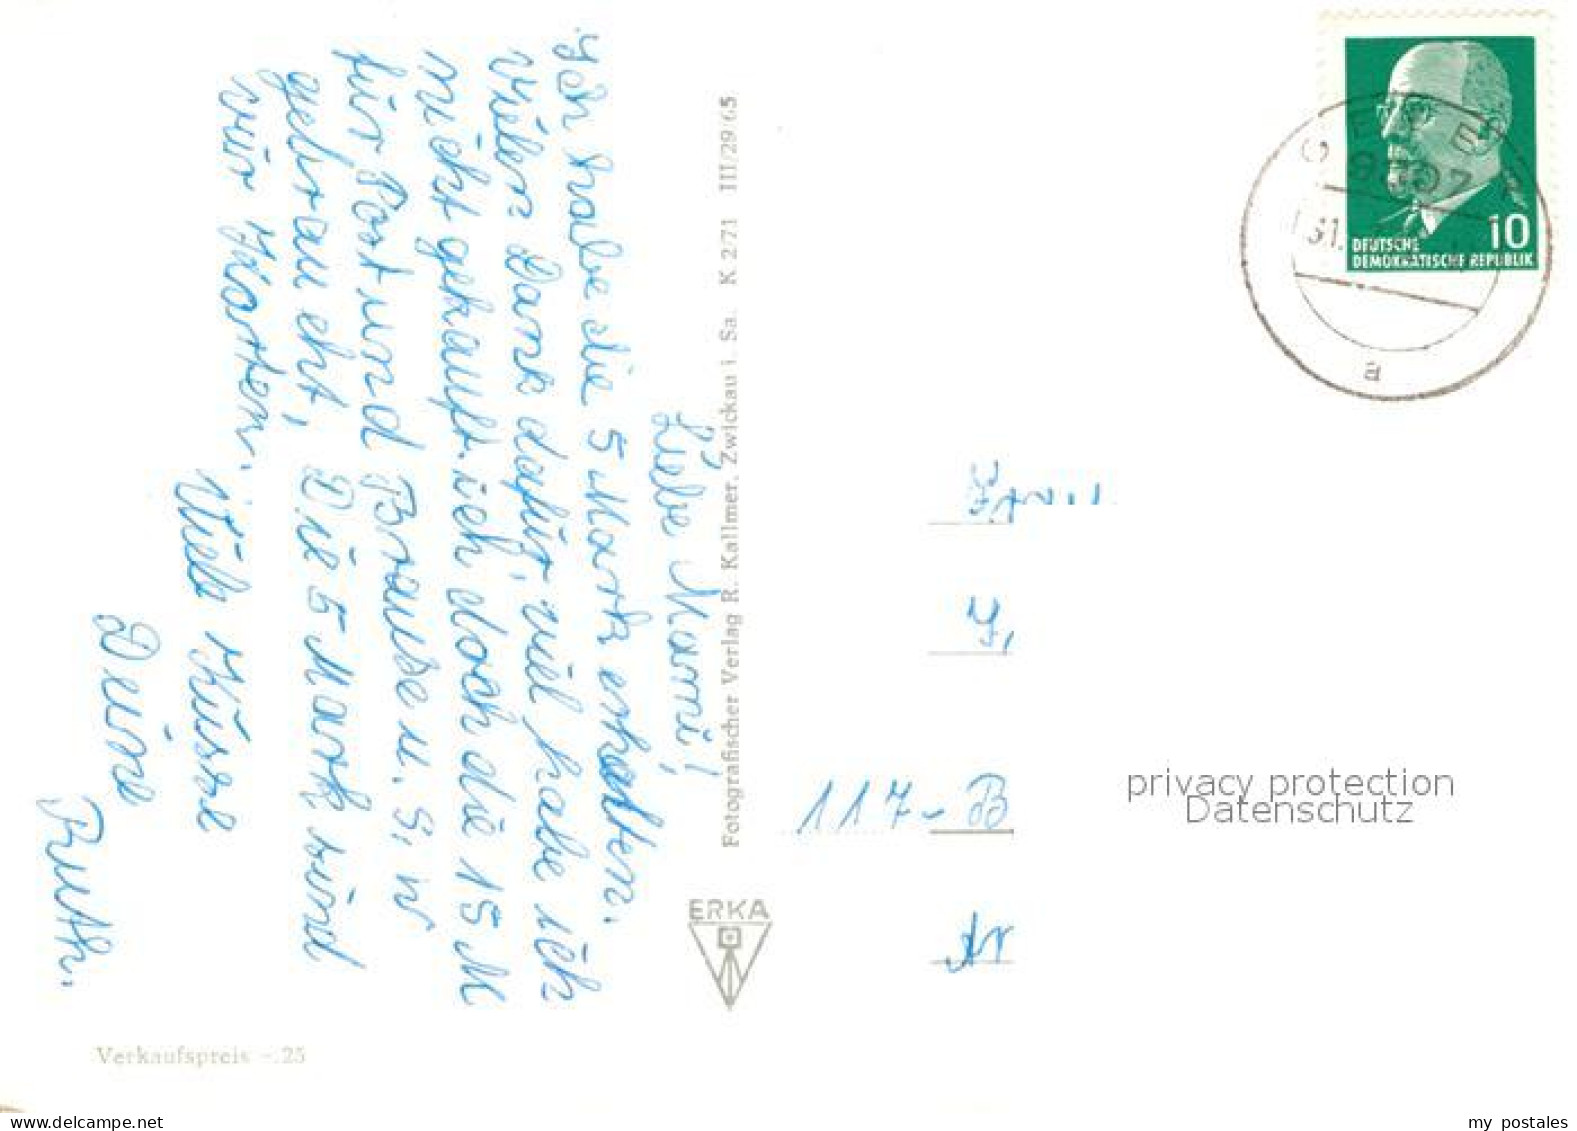 Liebe Mami!
Ich habe die 5 Mark erhalten.
Vielen Dank dafür, viel habe ich
nicht gekauft. ich doch die 15 M
für Post und Brause u. s. w
gebraucht, Die 5 Mark sind
für Karten.
Viele Küsse
Deine
Ruth.
Fotografischer Verlag R. Kallmer, Zwickau i. Sa. K 2/71 III/29/65
ERKA
Verkaufspreis -.25
10
DEUTSCHE
DEMOKRATISCHE REPUBLIK
a
117-B
privacy protection
Datenschutz
www.delcampe.net
my_postales